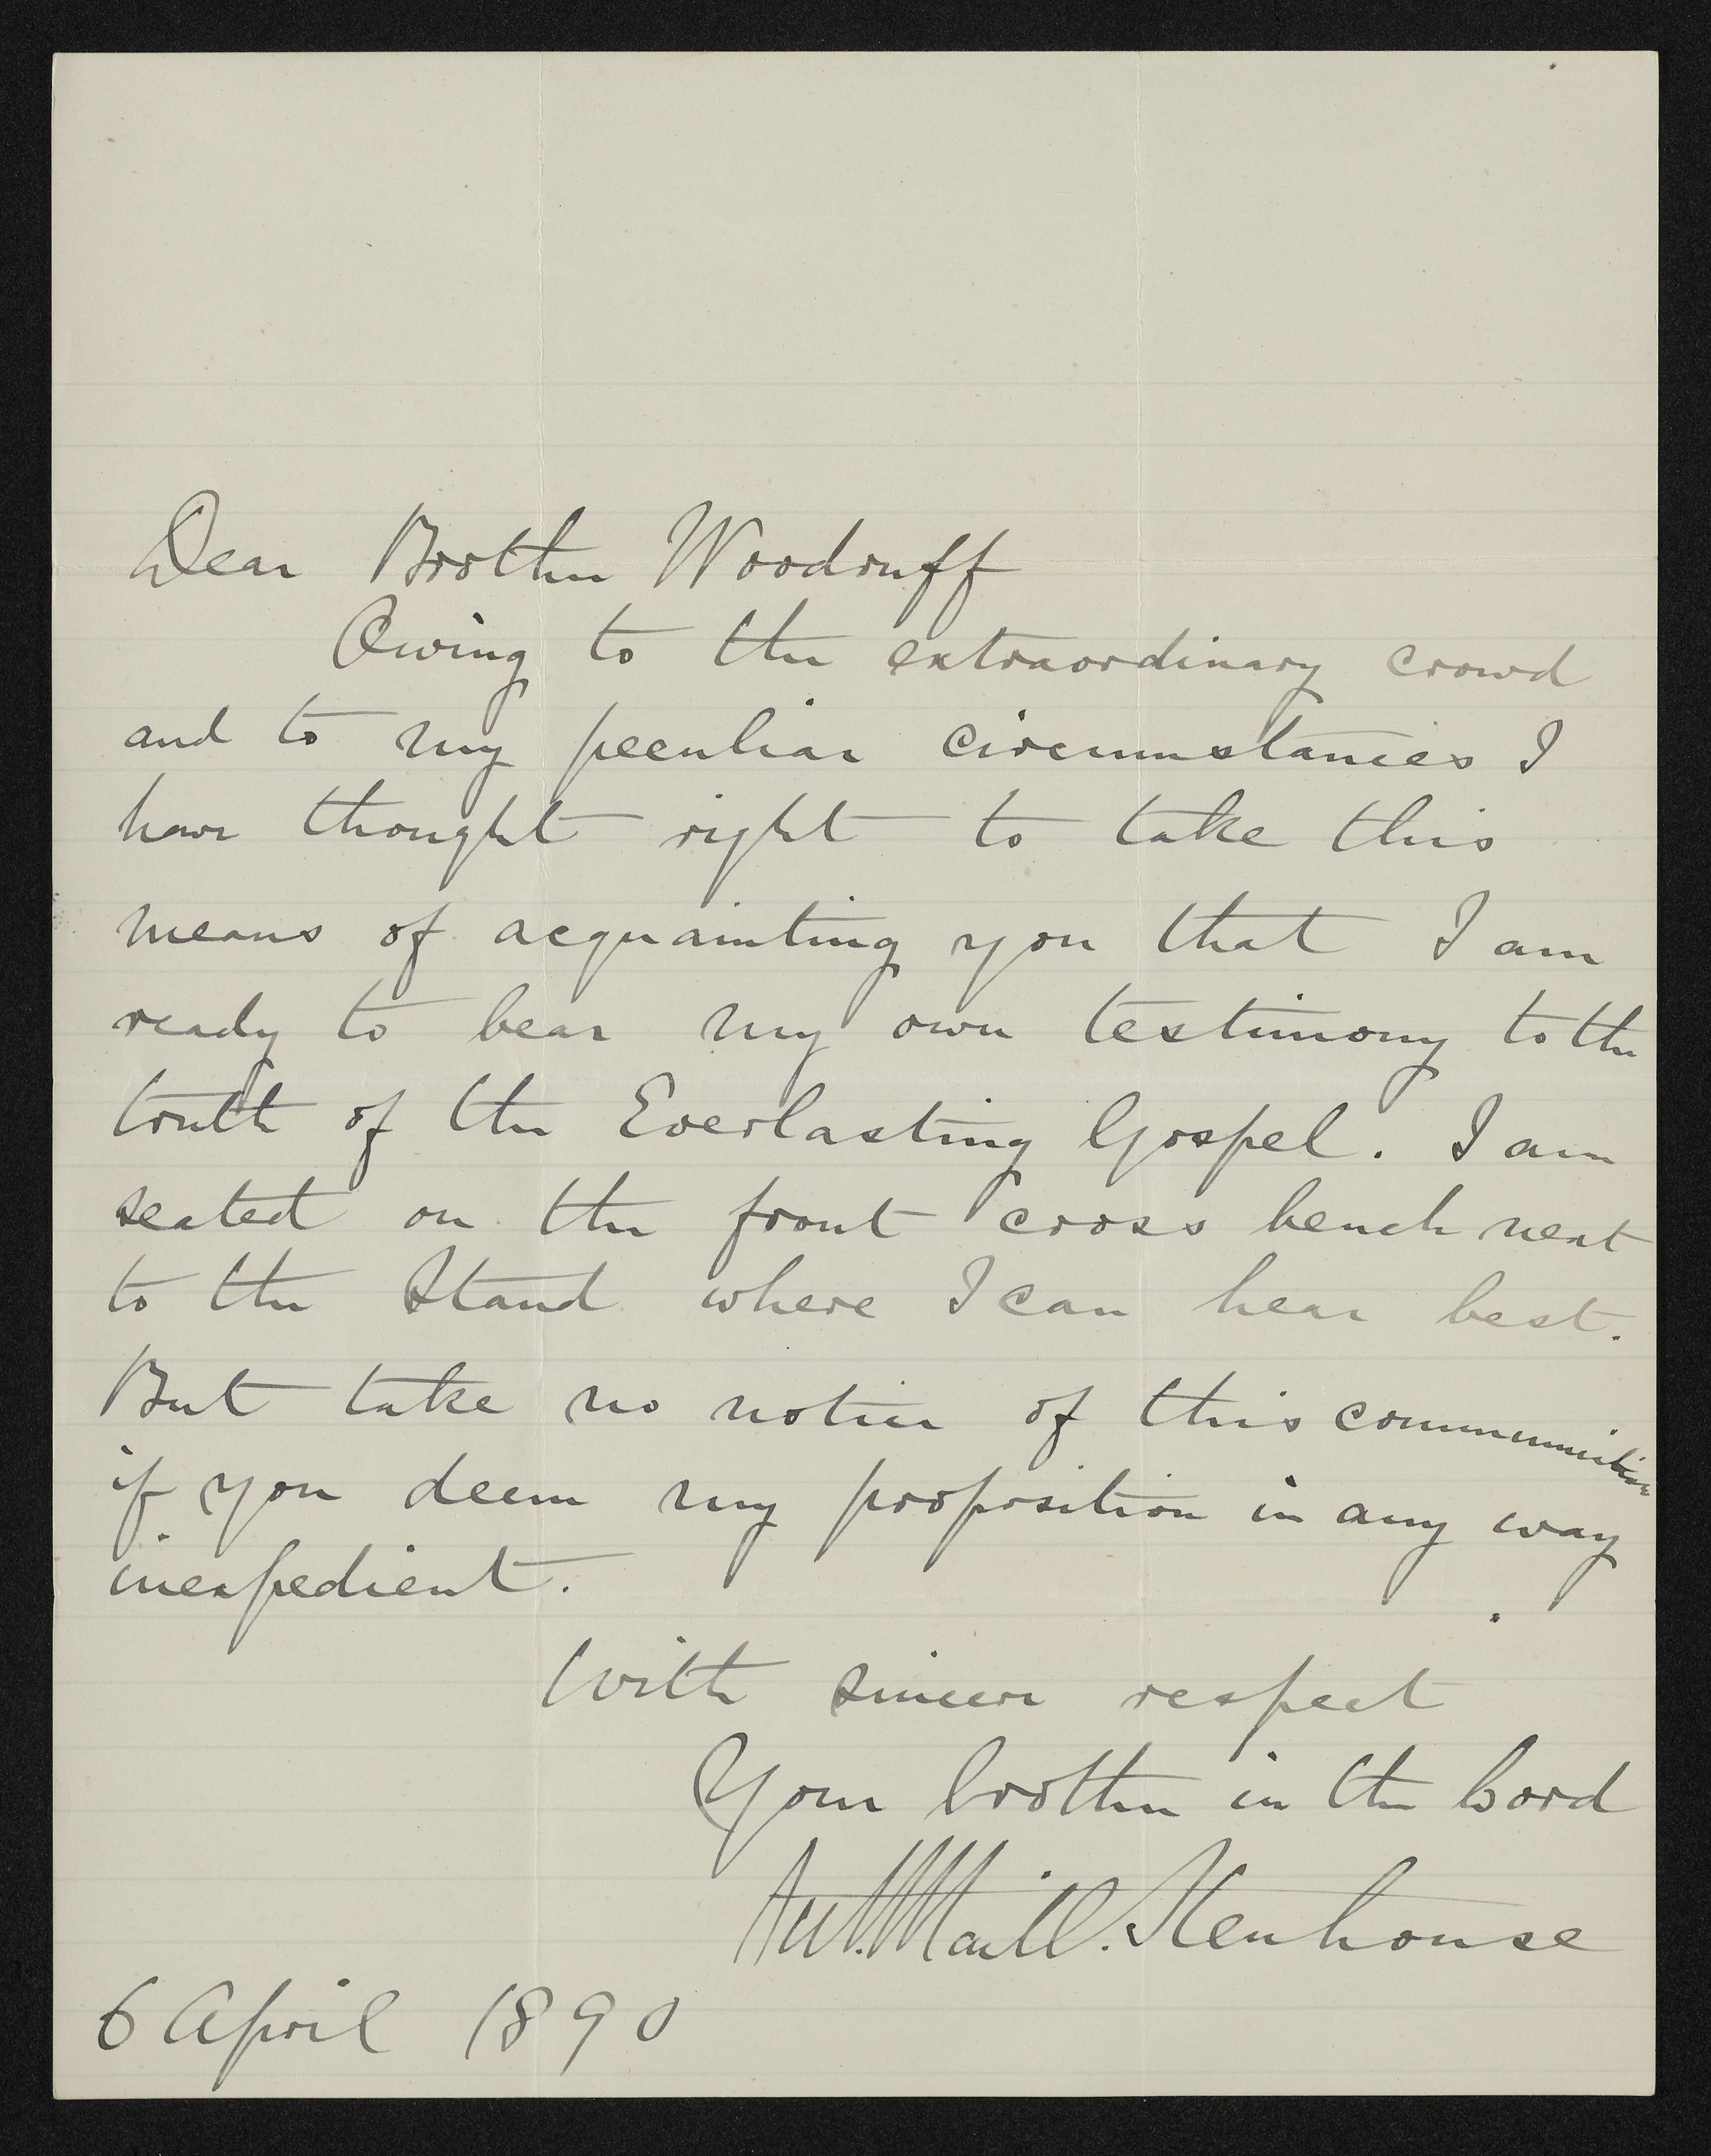 Dear Brother Woodruff
Owing to the extraordinary crowd
and to my peculiar circumstances I
have thought right to take this
means of acquainting you that I am
ready to bear my own testimony to the
truth of the Everlasting Gospel. I am
seated on the front cross bench next
to the Stand where I can hear best.
But take no notice of this communication
if you deem my proposition in any way
inexpedient.
With sincere respect
Your brother in the Lord
Maitl. Stenhouse
6 April 1890